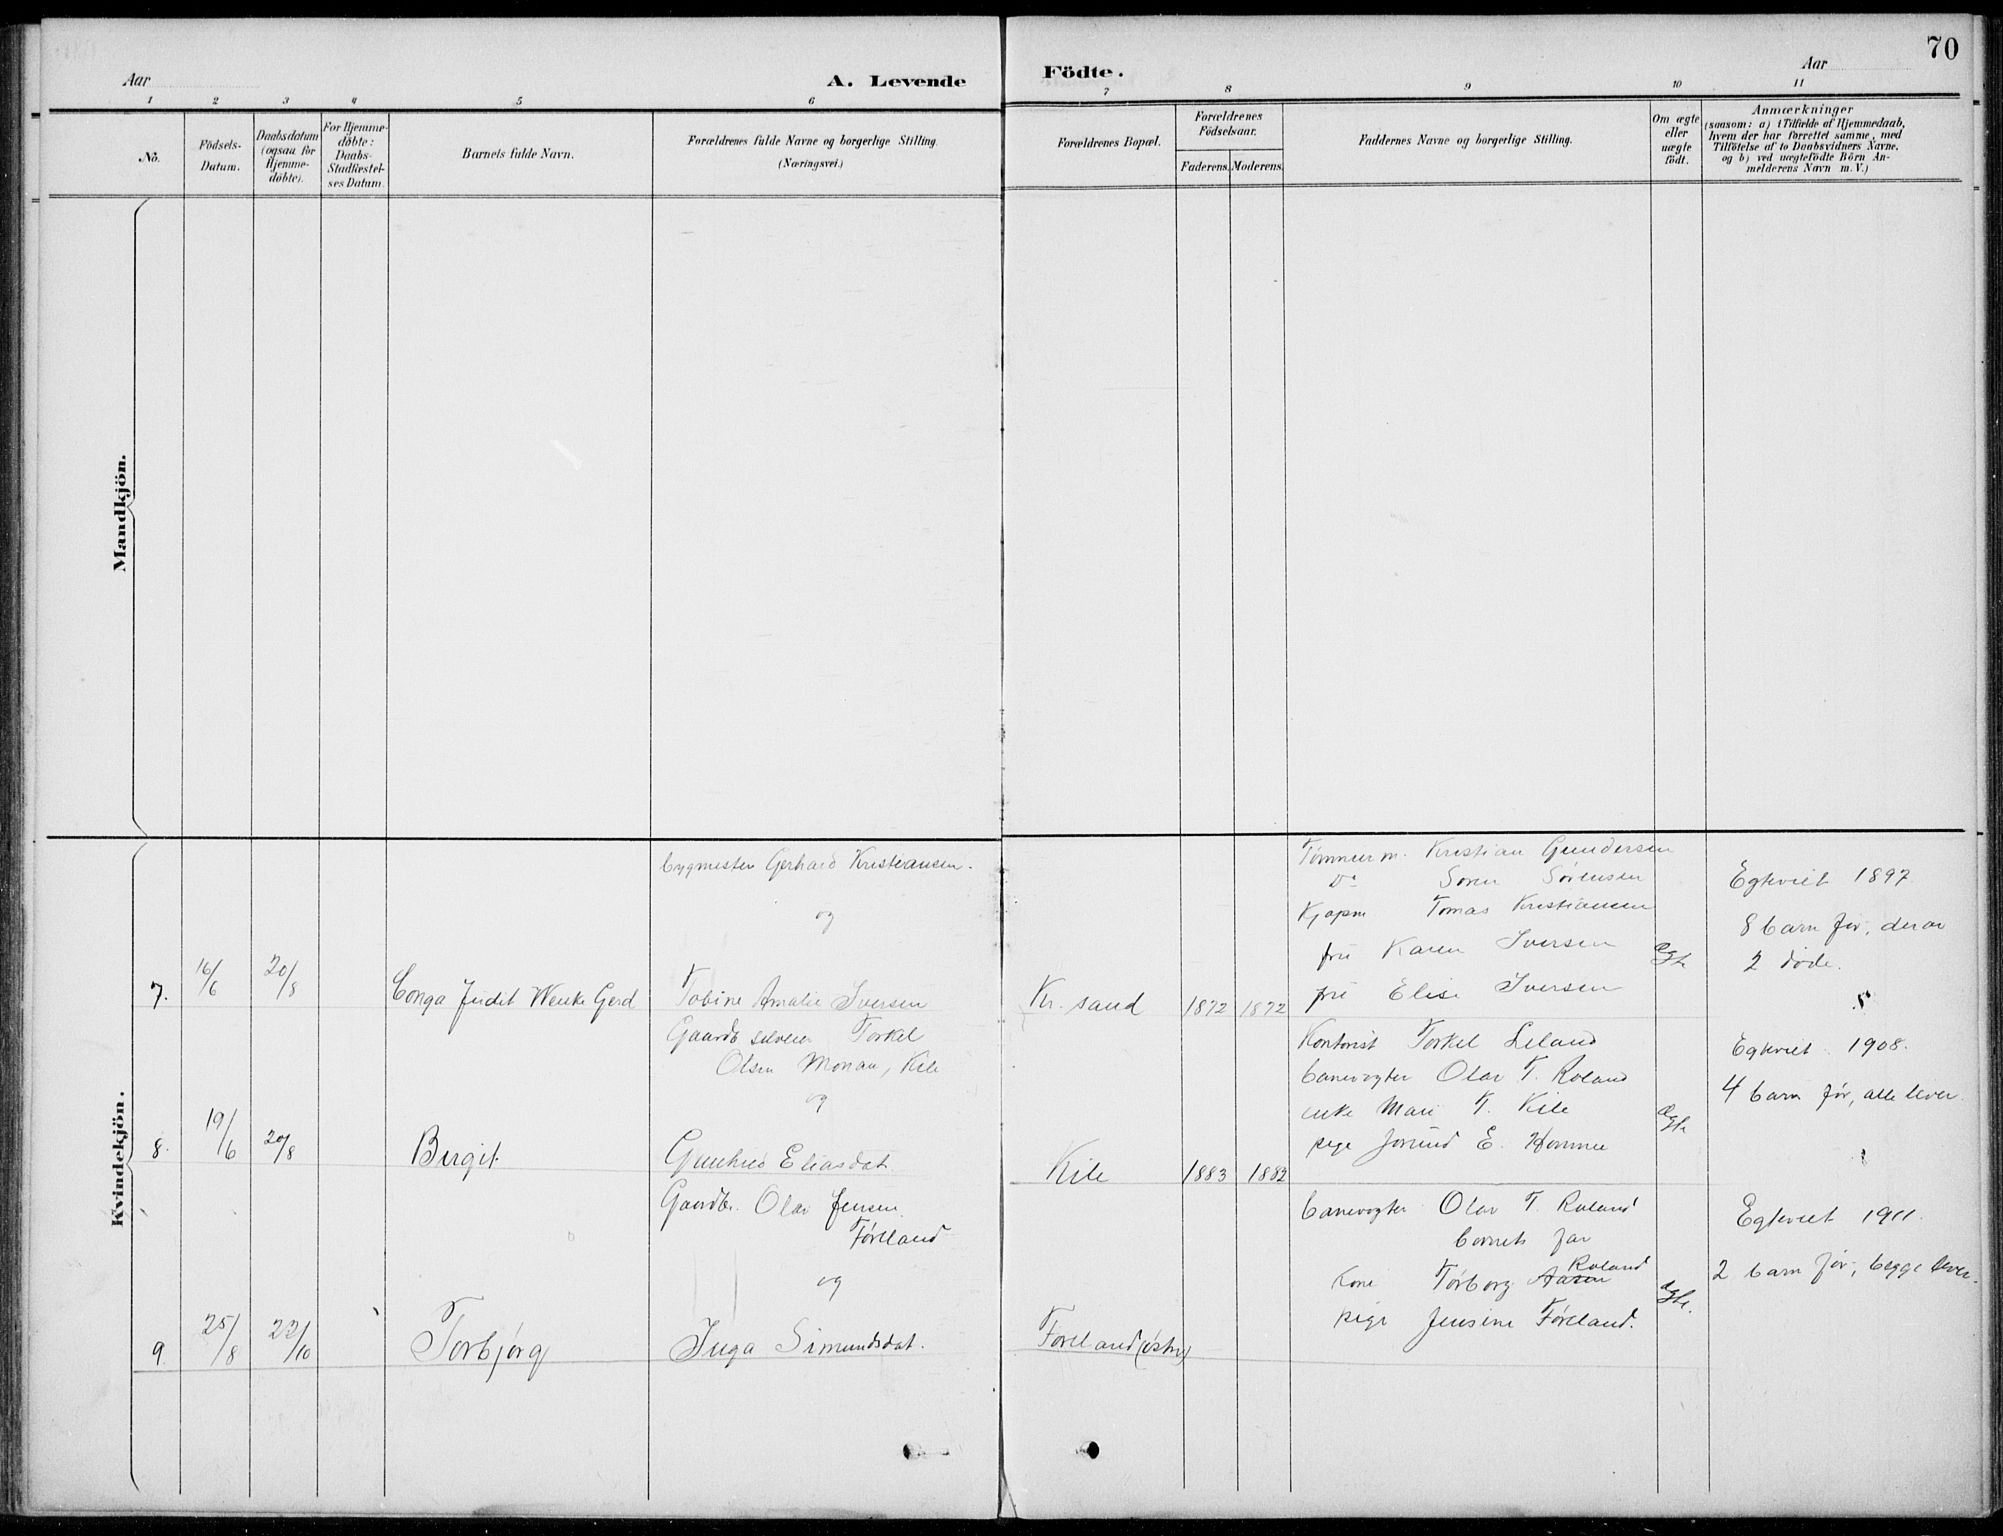 70
Aar
A. Levende
Födte.
Aar
1 2 3 4 5 6 7 8 9 10 11
No.
Födsels-
Datum.
Daabsdatum
(ogsaa for
Hjemme-
döbte).
For Hjemme-
döbte:
Daabs-
Stadfæstel-
ses Datum.
Barnets fulde Navn.
Forældrenes fulde Navne og borgerlige Stilling.
(Næringsvei.)
Forældrenes Bopæl.
Forældrenes
Födselsaar.
Faderens. Moderens.
Faddernes Navne og borgerlige Stilling.
Om ægte
eller
uægte
födt.
Anmærkninger
(saasom: a) i Tilfælde af Hjemmedaab,
hvem der har forrettet samme, med
Tilföielse af to Daabsvidners Navne,
og b) ved uægtefödte Börn An-
melderens Navn m. V.)
Mandkjön.
Kvindekjön.
7.
16/6
20/8
Conga Judit Wenke Gerd
bygmester Gerhard Kristiansen.
og
Tobine Amalie Iversen
Kr. sand
1872
1872
Tømmerm. Kristian Gundersen
Do Søren Sørensen
Kjøpm Tomas Kristiansen
fru Karen Iversen
fru Elise Iversen
ægte
Egteviet 1897.
8 barn før, derav
2 døde.
8.
19/6
20/8
Birgit
Gaardb selveier Torkel
Olsen Monan, Kile
og
Gunhild Eliasdat.
Kile
1883
1882
Kontorist Torkel Leland
banevogter Olav T. Roland
enke Mari T. Kile
pige Jorund E. Homme
ægte
Egteviet 1908.
4 barn før, alle lever.
9.
25/8
22/10
Torbjørg
Gaardbr. Olav Jensen
Føreland
og
Inga Simundsdat.
Føreland (østre)
banevogter Olav T. Roland
barnets far
Roland
kone Torborg Aasen
pige Jensine Føreland.
ægte.
Egteviet 1911.
2 barn før, begge lever.